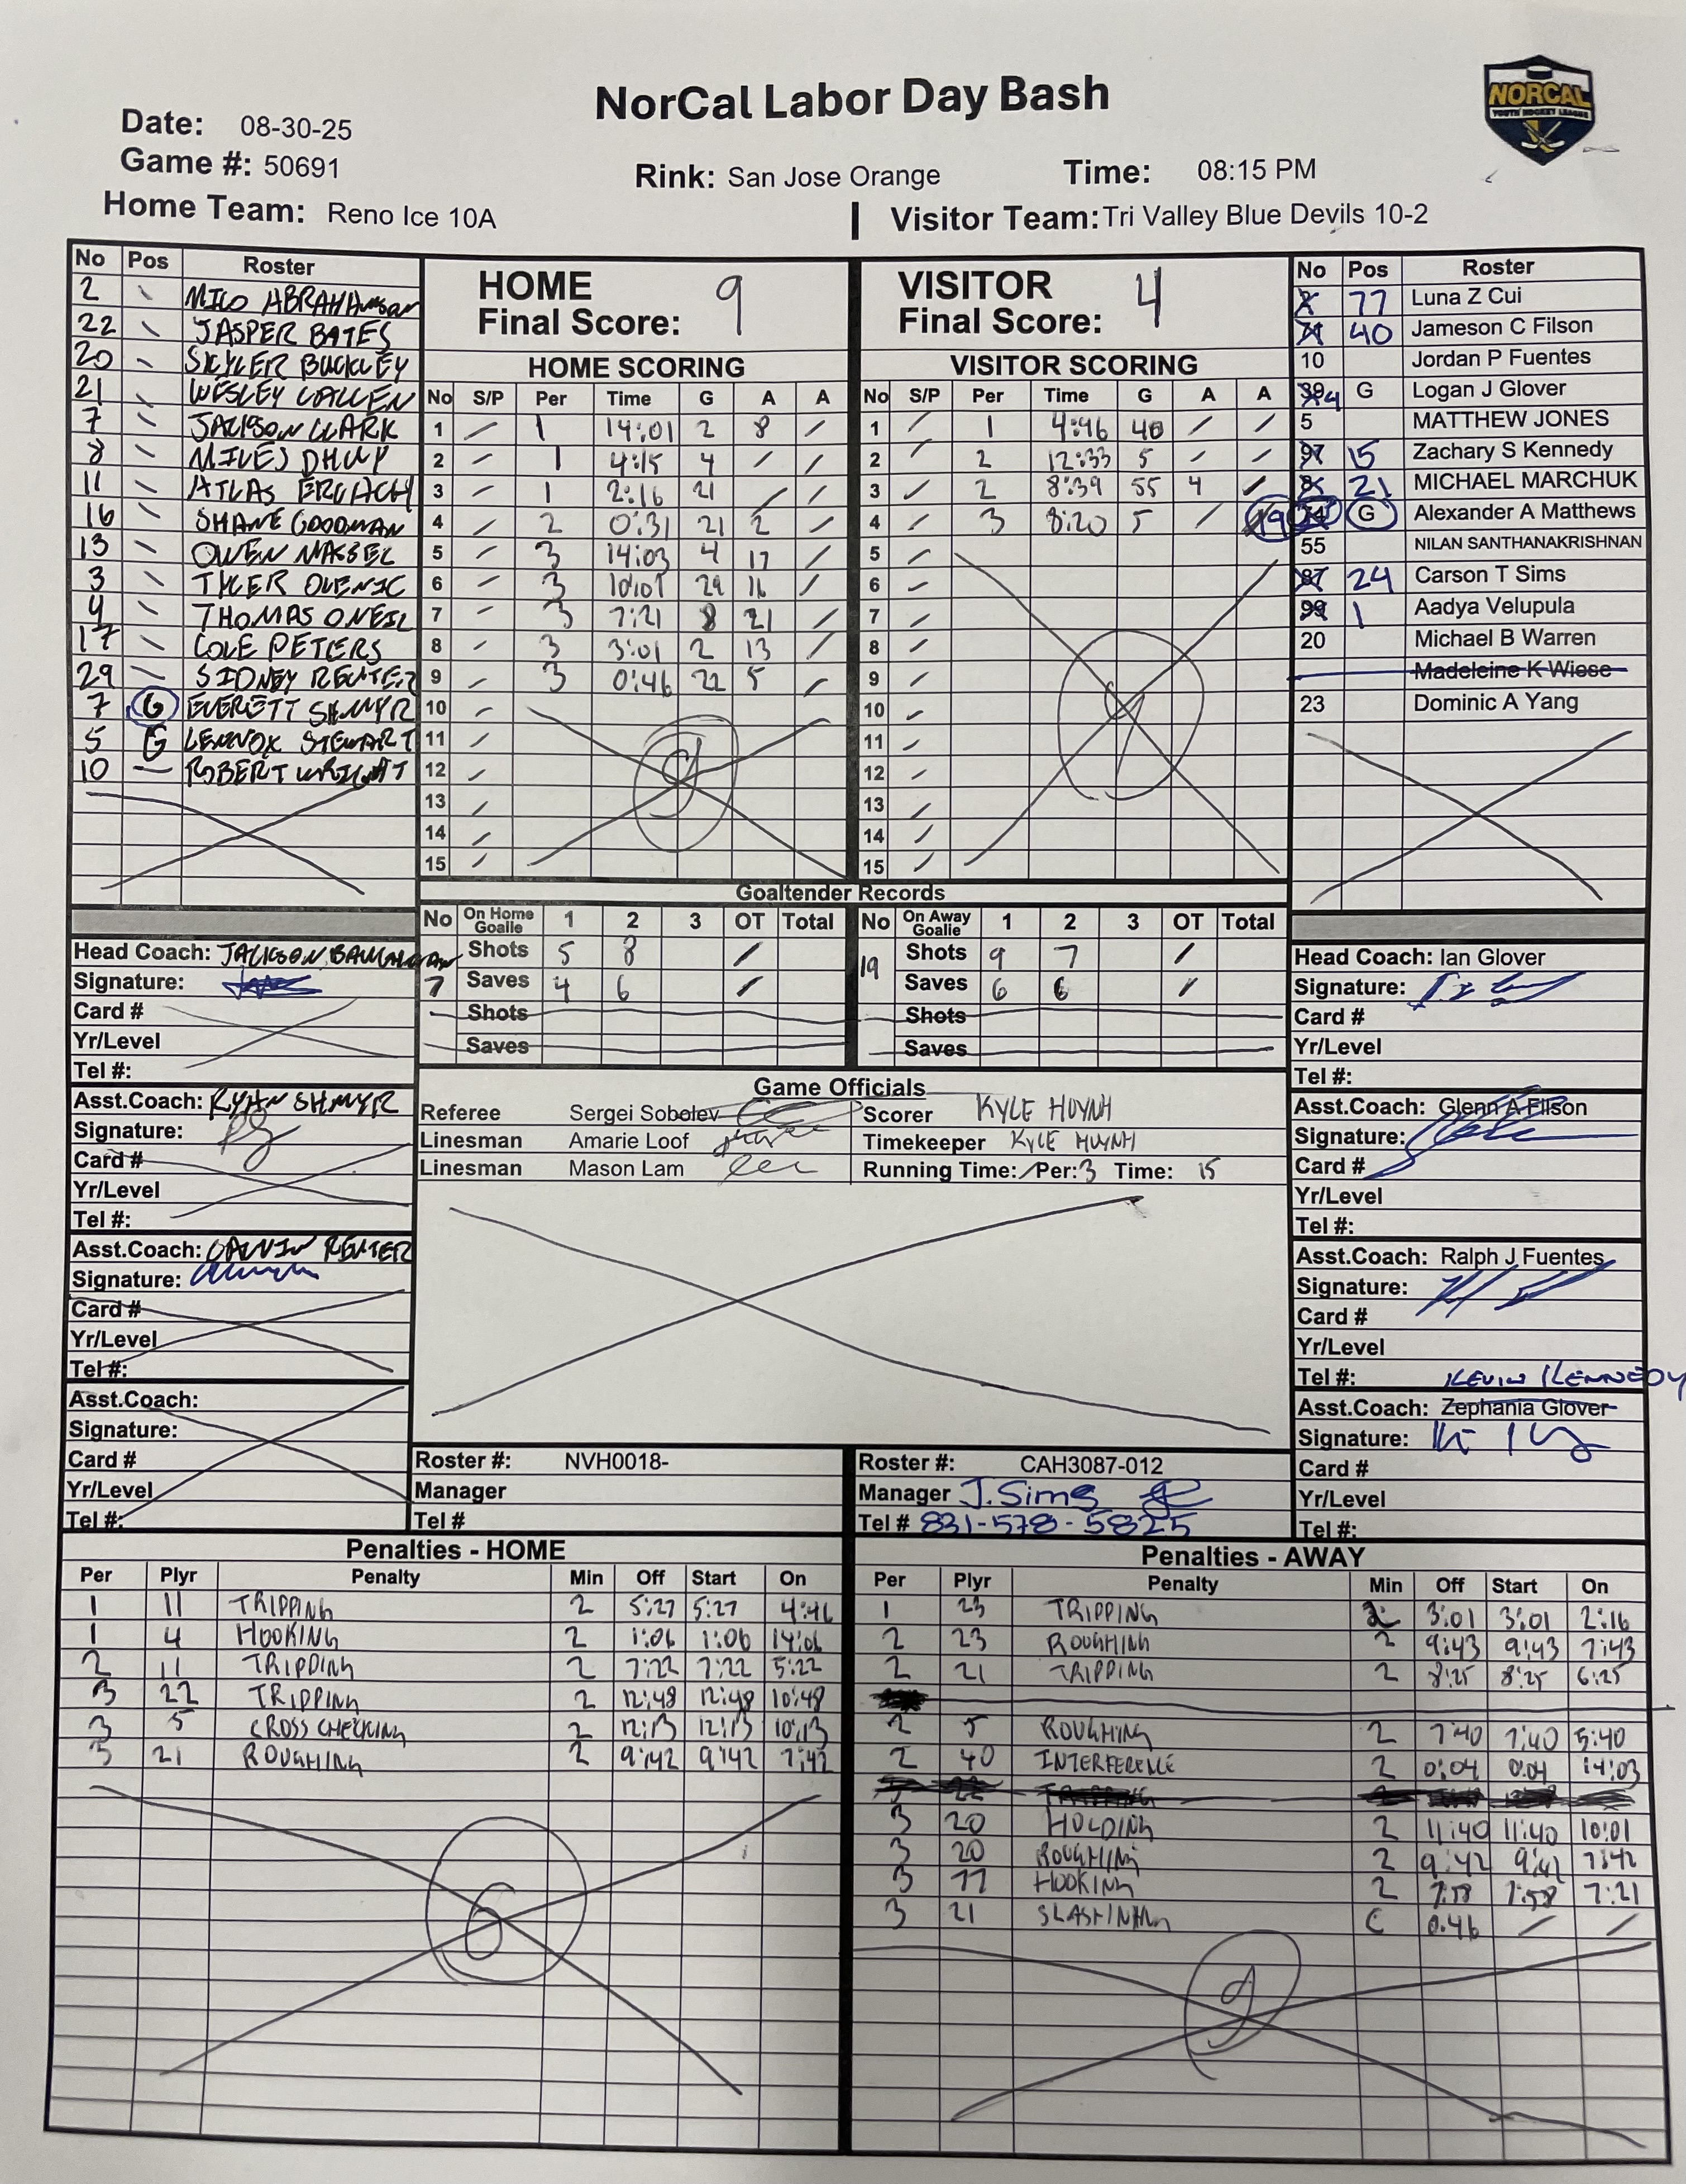 NorCal Labor Day Bash
NORCAL
YOUTH HOCKEY LEAGUE
Date: 08-30-25
Game #: 50691
Rink: San Jose Orange
Time: 08:15 PM
Home Team: Reno Ice 10A
Visitor Team: Tri Valley Blue Devils 10-2
No Pos Roster
2 MILO ABRAHAMSON
22 JASPER BATES
20 SKYLER BUCKLEY
21 WESLEY CALLEN
7 JACKSON CLARK
8 MILES DHUP
11 ATLAS ERLACH
16 SHANE GOODMAN
13 OWEN
3 TYLER
4 THOMAS ONEIL
17 COLE PETERS
29 SIDNEY REUTER
7 G EVERETT SHMYR
5 G LENNOX STEWART
10 ROBERT WRIGHT
HOME
Final Score: 9
HOME SCORING
No S/P Per Time G A A
1 / 1 14:01 2 8 /
2 / 1 4:15 4 / /
3 / 1 2:16 21 / /
4 / 2 0:31 21 2 /
5 / 3 14:03 4 17 /
6 / 3 10:01 29 16 /
7 / 3 7:21 8 21 /
8 / 3 3:01 2 13 /
9 / 3 0:46 22 5 /
10 /
11 /
12 /
13 /
14 /
15 /
9
VISITOR
Final Score: 4
VISITOR SCORING
No S/P Per Time G A A
1 / 1 4:46 40 / /
2 / 2 12:33 5 / /
3 / 2 8:39 55 4 /
4 / 3 8:20 5 /
5 /
6 /
7 /
8 /
9 /
10 /
11 /
12 /
13 /
14 /
15 /
No Pos Roster
77 Luna Z Cui
40 Jameson C Filson
10 Jordan P Fuentes
4 G Logan J Glover
5 MATTHEW JONES
97 15 Zachary S Kennedy
21 MICHAEL MARCHUK
19 G Alexander A Matthews
55 NILAN SANTHANAKRISHNAN
87 24 Carson T Sims
99 1 Aadya Velupula
20 Michael B Warren
Madeleine K Wiese
23 Dominic A Yang
Goaltender Records
No On Home Goalie 1 2 3 OT Total
7 Shots 5 8 /
Saves 4 6 /
Shots
Saves
No On Away Goalie 1 2 3 OT Total
19 Shots 9 7 /
Saves 6 6 /
Shots
Saves
Game Officials
Referee Sergei Sobolev
Linesman Amarie Loof
Linesman Mason Lam
Scorer KYLE HUYNH
Timekeeper KYLE HUYNH
Running Time: / Per: 3 Time: 15
Head Coach: JACKSON
Signature:
Card #
Yr/Level
Tel #:
Asst.Coach: RYAN SHMYR
Signature:
Card #
Yr/Level
Tel #:
Asst.Coach: CALVIN REUTER
Signature:
Card #
Yr/Level
Tel #:
Asst.Coach:
Signature:
Card #
Yr/Level
Tel #:
Head Coach: Ian Glover
Signature:
Card #
Yr/Level
Tel #:
Asst.Coach: Glenn A Filson
Signature:
Card #
Yr/Level
Tel #:
Asst.Coach: Ralph J Fuentes
Signature:
Card #
Yr/Level
Tel #:
KEVIN KENNEDY
Asst.Coach: Zephania Glover
Signature:
Card #
Yr/Level
Tel #:
Roster #: NVH0018-
Manager
Tel #
Roster #: CAH3087-012
Manager J. Sims
Tel # 831-578-5825
Penalties - HOME
Per Plyr Penalty Min Off Start On
1 11 TRIPPING 2 5:27 5:27 4:46
1 4 HOOKING 2 1:06 1:06 14:06
2 11 TRIPPING 2 7:22 7:22 5:22
3 22 TRIPPING 2 12:48 12:48 10:48
3 5 CROSS CHECKING 2 12:13 12:13 10:13
3 21 ROUGHING 2 9:42 9:42 7:42
6
Penalties - AWAY
Per Plyr Penalty Min Off Start On
1 23 TRIPPING 2 3:01 3:01 2:16
2 23 ROUGHING 2 9:43 9:43 7:43
2 21 TRIPPING 2 8:25 8:25 6:25
2 5 ROUGHING 2 7:40 7:40 5:40
2 40 INTERFERENCE 2 0:04 0:04 14:03
3 20 HOLDING 2 11:40 11:40 10:01
3 20 ROUGHING 2 9:42 9:42 7:42
3 77 HOOKING 2 7:58 7:58 7:21
3 21 SLASHING 0:46 / /
9